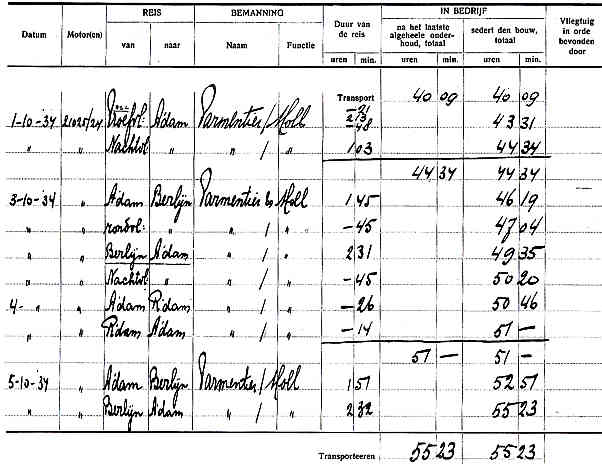 Datum Motor(en) REIS BEMANNING Duur van de reis IN BEDRIJF Vliegtuig in orde bevonden door
van naar Naam Functie na het laatste algeheele onderhoud, totaal sedert den bouw, totaal
uren min. uren min. uren min.
Transport 40 09 40 09
1-10-'34 Adam Parmentier / Moll 43 31
" " Nachtvl " " / " 1 03 44 34
44 34 44 34
3-10-'34 " Adam Berlijn Parmentier & Moll 1 45 46 19
" " rondvl: " " / " - 45 47 04
" " Berlijn Adam " / " 2 31 49 35
" Nachtvl " " / " - 45 50 20
4- " " Adam R'dam " / " - 26 50 46
" " R'dam Adam " / " - 14 51 -
51 - 51 -
5-10-'34 " Adam Berlijn Parmentier / Moll 1 51 52 51
" " Berlijn Adam " / " 2 32 55 23
Transporteeren 55 23 55 23